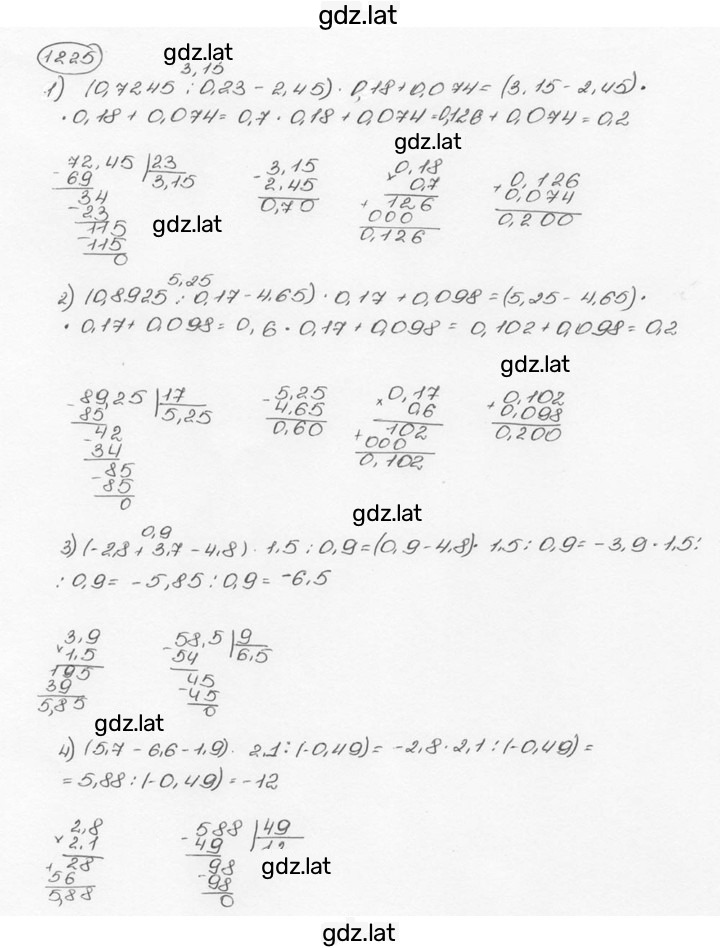 gdz.lat
1225
gdz.lat
3,15
1) (0,7245 : 0,23 - 2,45) · 0,18 + 0,074 = (3,15 - 2,45) ·
· 0,18 + 0,074 = 0,7 · 0,18 + 0,074 = 0,126 + 0,074 = 0,2
gdz.lat
72,45 | 23
- 69 3,15
34
- 23
115
- 115
0
gdz.lat
3,15
- 2,45
0,70
0,18
× 0,7
126
+ 000
0,126
0,126
+ 0,074
0,200
5,25
2) (0,8925 : 0,17 - 4,65) · 0,17 + 0,098 = (5,25 - 4,65) ·
· 0,17 + 0,098 = 0,6 · 0,17 + 0,098 = 0,102 + 0,098 = 0,2
gdz.lat
89,25 | 17
- 85 5,25
42
- 34
85
- 85
0
5,25
- 4,65
0,60
0,17
× 0,6
102
+ 000
0,102
0,102
+ 0,098
0,200
gdz.lat
0,9
3) (-2,8 + 3,7 - 4,8) · 1,5 : 0,9 = (0,9 - 4,8) · 1,5 : 0,9 = -3,9 · 1,5 :
: 0,9 = -5,85 : 0,9 = -6,5
3,9
× 1,5
195
39
5,85
58,5 | 9
- 54 6,5
45
- 45
0
gdz.lat
4) (5,7 - 6,6 - 1,9) · 2,1 : (-0,49) = -2,8 · 2,1 : (-0,49) =
= 5,88 : (-0,49) = -12
2,8
× 2,1
28
+ 56
5,88
588 | 49
- 49 12
98
- 98
0
gdz.lat
gdz.lat